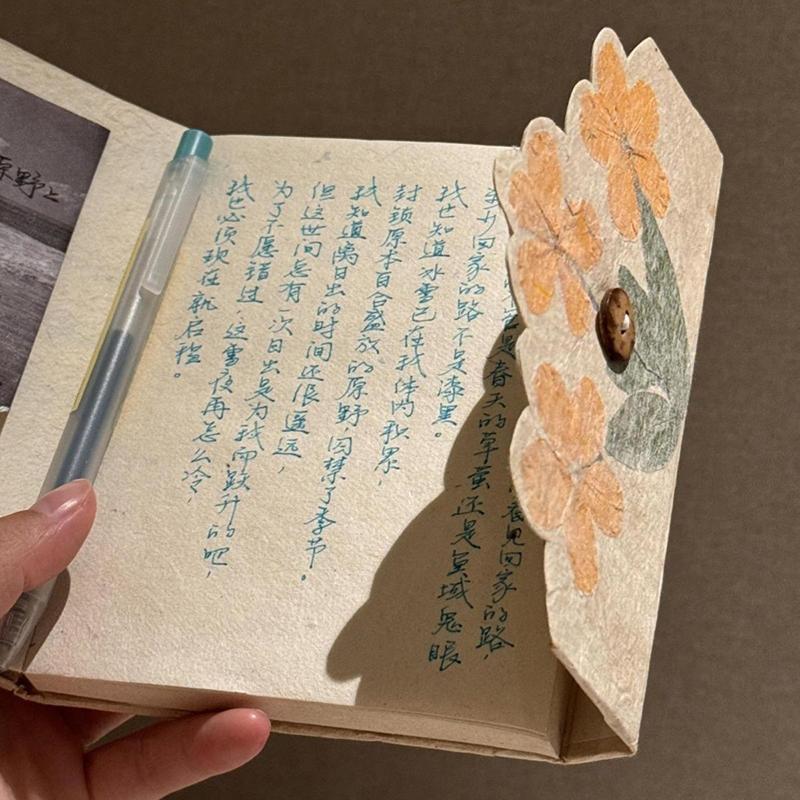 原野上
见回家的路，
它是春天的草萤还是鱼域鬼眼
至少回家的路不是漆黑。
我也知道冰雪已在我体内积累，
封锁原本百合盛放的原野，囚禁了季节。
我知道离日出的时间还很遥远，
但这世间总有一次日出是为我而跃升的吧，
为了不愿错过，这雪夜再怎么冷，
我也必须现在就启程。